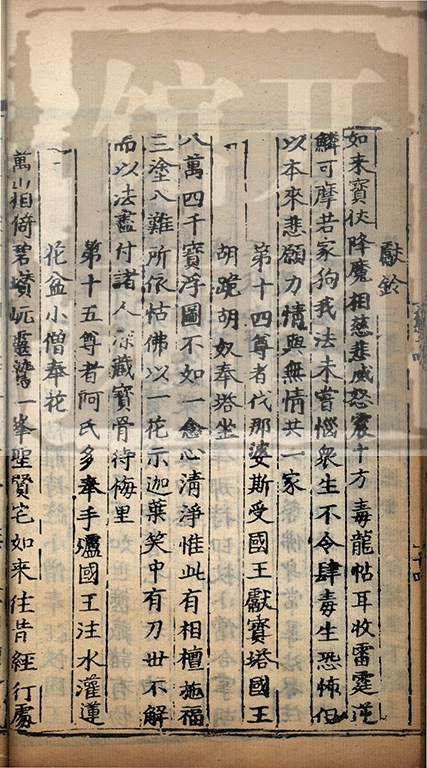 獻鈴
如来寳伏降魔相慈悲威怒震十方毒龍帖耳收雷霆逆
鱗可摩若家狗我法未嘗惱衆生不令肆毒生恐怖但
以本来悲願力情與無情共一家
第十四尊者伐那婆斯受國王獻寳塔國王
胡跪胡奴奉塔坐
八萬四千寳浮圖不如一念心清淨惟此有相檀施福
三塗八難所依怙佛以一花示迦葉笑中有刀世不解
而以法盡付諸人深藏寳骨待梅里
第十五尊者阿氏多奉手爐國王注水灌蓮
花盆小僧奉花
萬山相倚碧巑岏靈鷲一峯聖賢宅如来住昔經行處